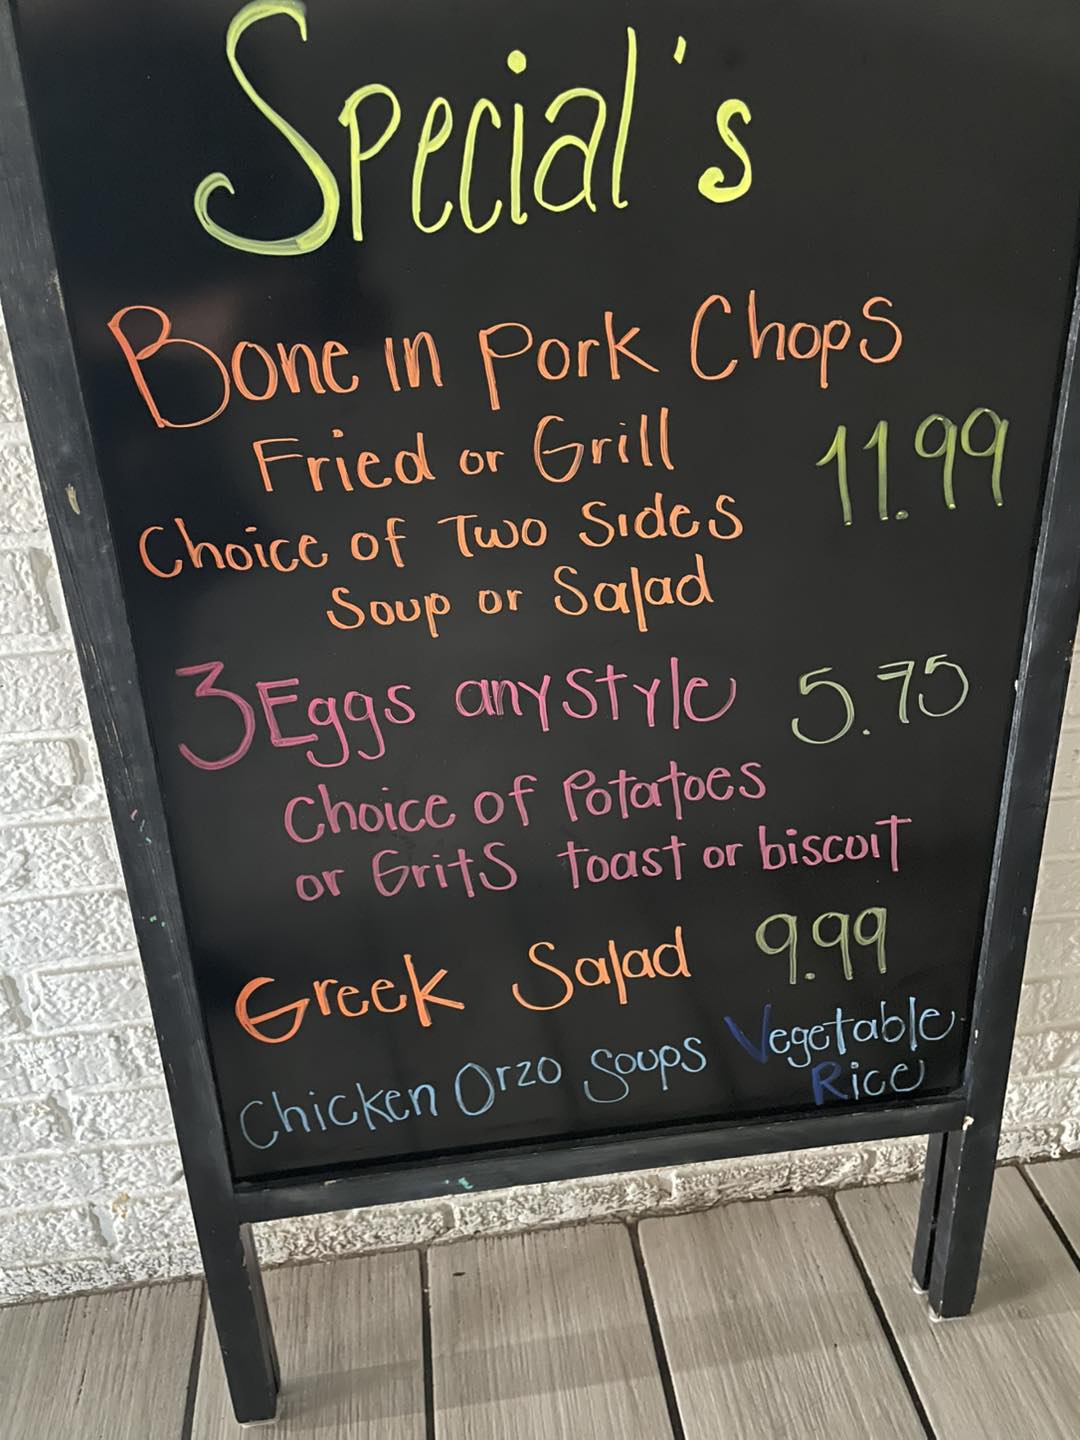 Special's
Bone in Pork Chops
Fried or Grill 11.99
Choice of Two Sides
Soup or Salad
3 Eggs any style 5.75
Choice of Potatoes
or Grits toast or biscuit
Greek Salad 9.99
Chicken Orzo Soups Vegetable
Rice